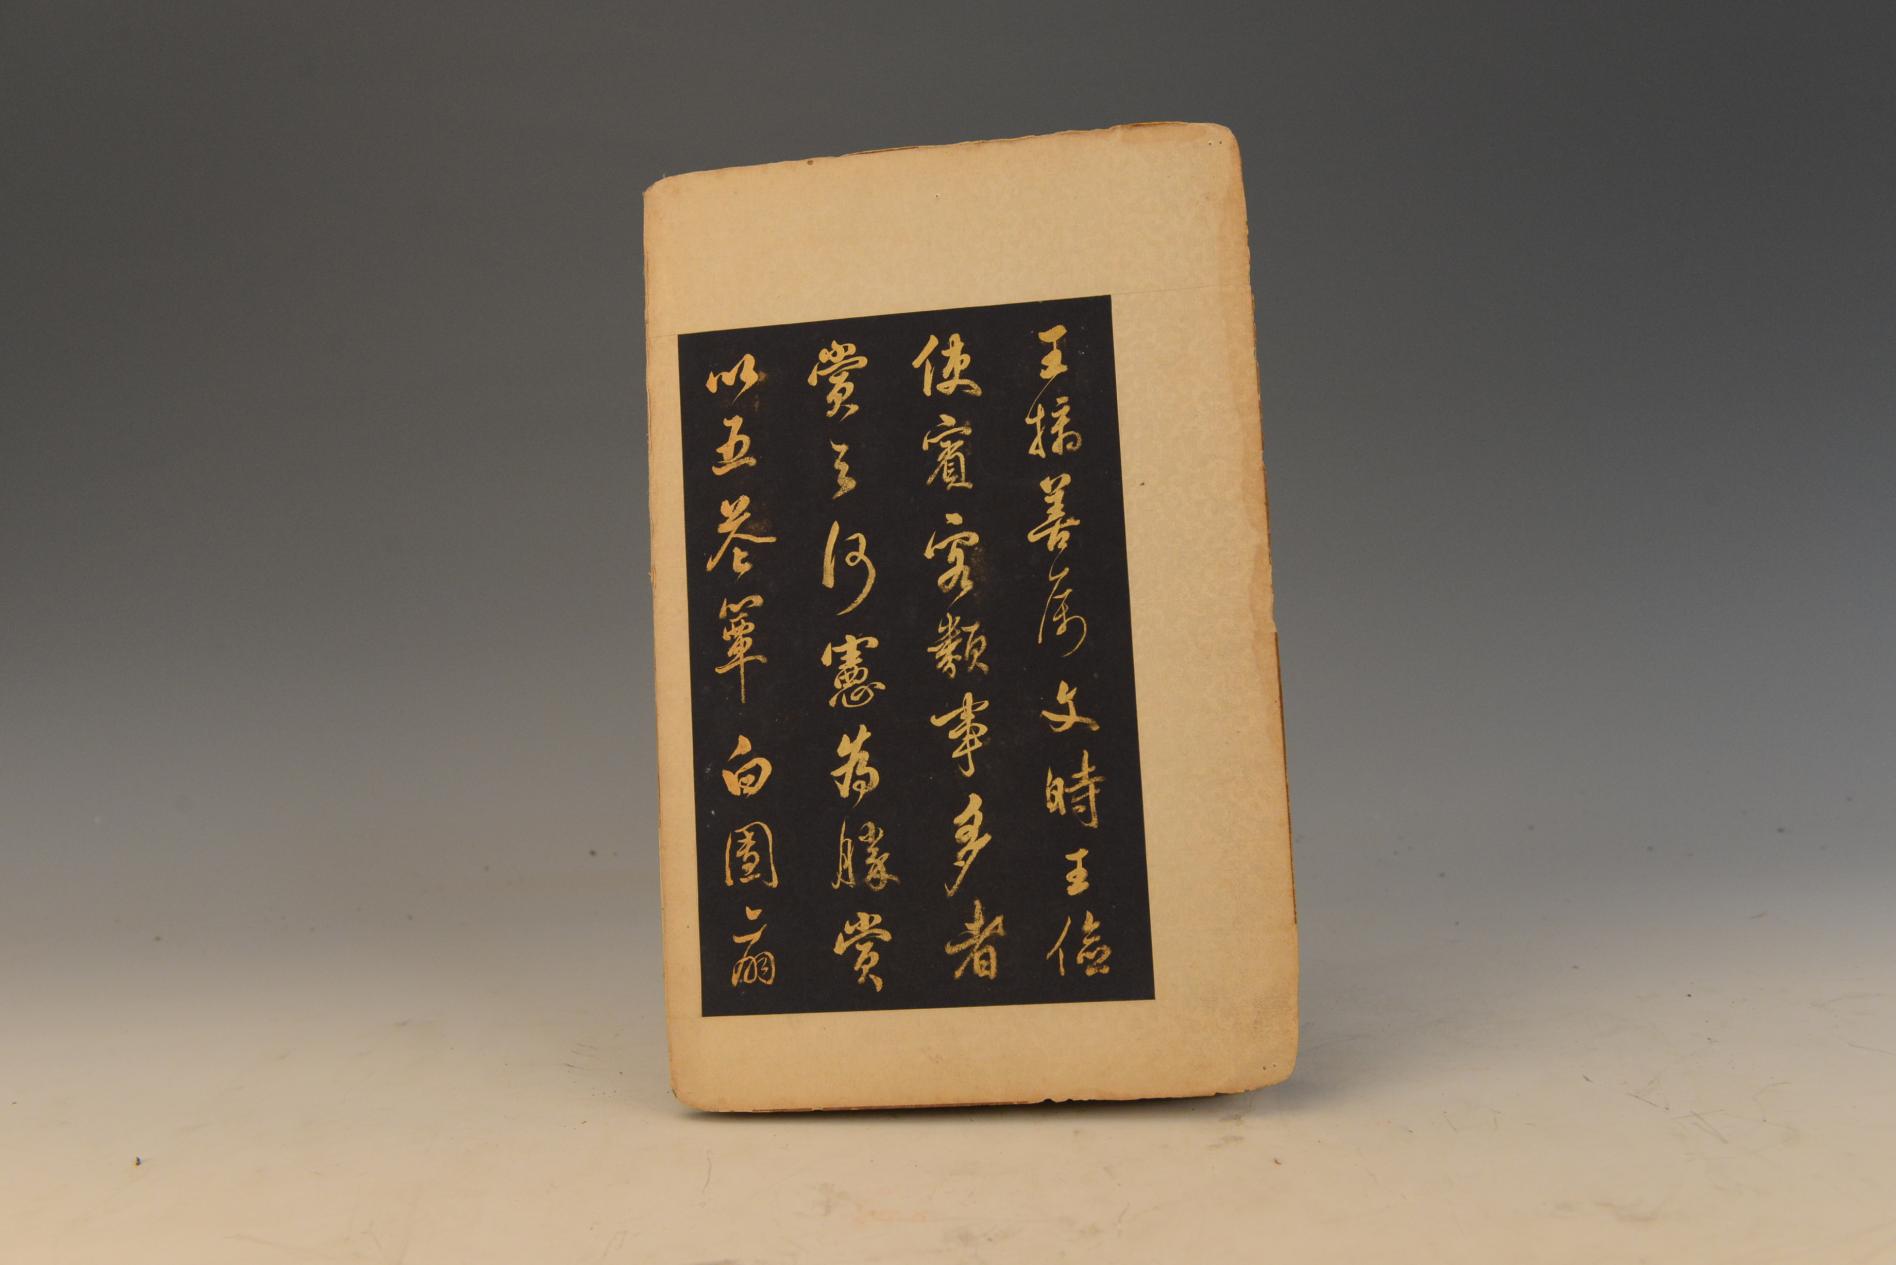 王摛善属文時王儉
使賓客類事多者
賞之何憲為勝賞
以五花簟白團扇